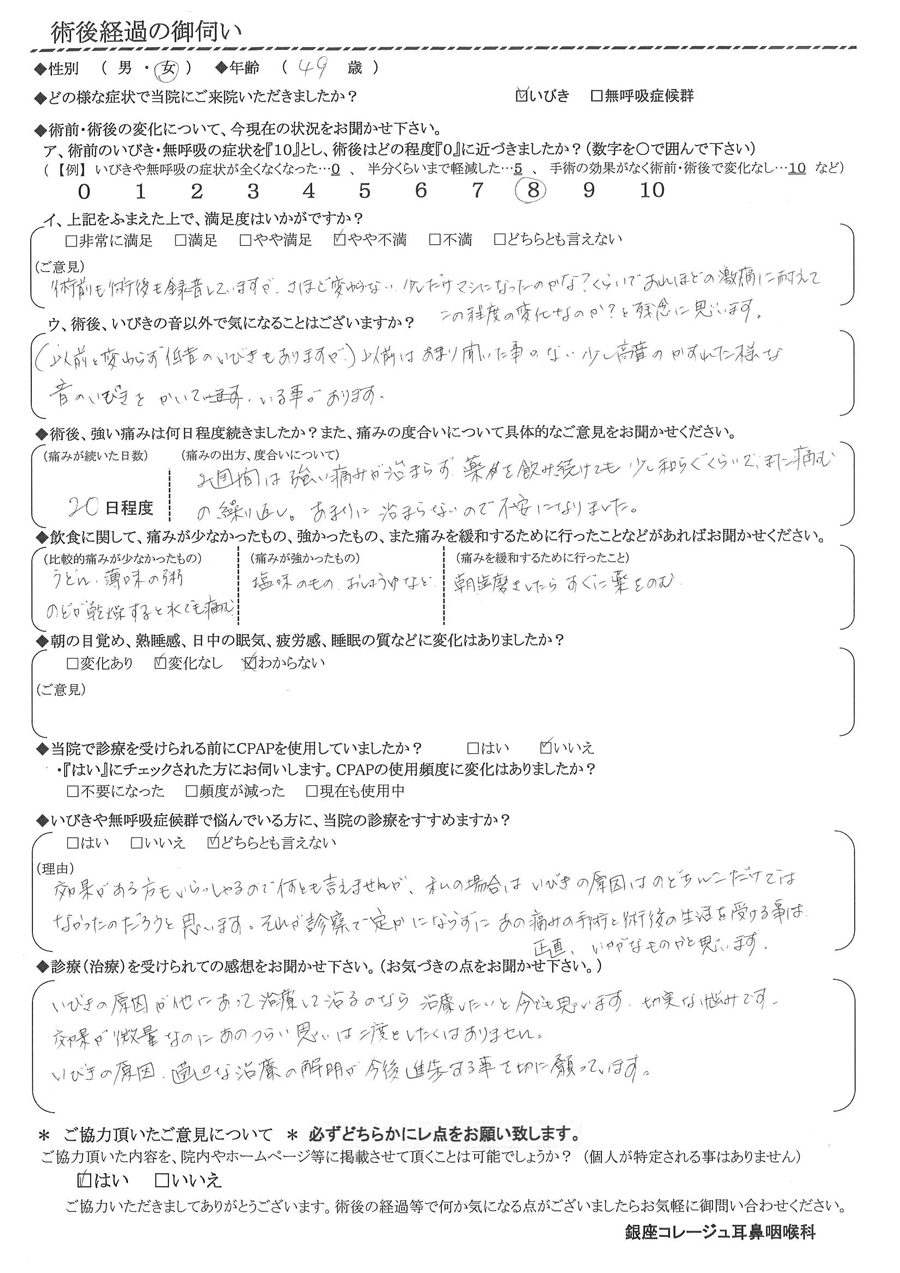 術後経過の御伺い
◆性別 ( 男 ・ 女 ) ◆年齢 ( 49 歳 )
◆どの様な症状で当院にご来院いただきましたか? ☑いびき □無呼吸症候群
◆術前・術後の変化について、今現在の状況をお聞かせ下さい。
ア、術前のいびき・無呼吸の症状を『10』とし、術後はどの程度『0』に近づきましたか?(数字を〇で囲んで下さい)
(【例】 いびきや無呼吸の症状が全くなくなった…0 、 半分くらいまで軽減した…5 、 手術の効果がなく術前・術後で変化なし…10 など)
0 1 2 3 4 5 6 7 8 9 10
イ、上記をふまえた上で、満足度はいかがですか?
□非常に満足 □満足 □やや満足 ☑やや不満 □不満 □どちらとも言えない
(ご意見)
術前も術後も録音していますが、さほど変わらない。少しだけマシになったのかな?くらいで あれほどの激痛に耐えて
この程度の変化なのか?と残念に思います。
ウ、術後、いびきの音以外で気になることはございますか?
(以前と変わらず低音のいびきもありますが、)以前はあまり聞いた事のない少し高音のかすれた様な
音のいびきをかいている事があります。
◆術後、強い痛みは何日程度続きましたか?また、痛みの度合いについて具体的なご意見をお聞かせください。
(痛みが続いた日数) (痛みの出方、度合いについて)
2週間は強い痛みが治まらず、薬を飲み続けても少し和らぐくらいで、また痛む
20 日程度 の繰り返し。あまりに治まらないので不安になりました。
◆飲食に関して、痛みが少なかったもの、強かったもの、また痛みを緩和するために行ったことなどがあればお聞かせください。
(比較的痛みが少なかったもの) (痛みが強かったもの) (痛みを緩和するために行ったこと)
うどん、薄味の粥 塩味のもの、おしょうゆなど 朝歯磨きしたらすぐに薬をのむ
のどが乾燥すると水でも痛む
◆朝の目覚め、熟睡感、日中の眠気、疲労感、睡眠の質などに変化はありましたか?
□変化あり ☑変化なし ☑わからない
(ご意見)
◆当院で診療を受けられる前にCPAPを使用していましたか? □はい ☑いいえ
・『はい』にチェックされた方にお伺いします。CPAPの使用頻度に変化はありましたか?
□不要になった □頻度が減った □現在も使用中
◆いびきや無呼吸症候群で悩んでいる方に、当院の診療をすすめますか?
□はい □いいえ ☑どちらとも言えない
(理由)
効果がある方もいらっしゃるので何とも言えませんが、私の場合はいびきの原因はのどちんこだけでは
なかったのだろうと思います。それが診察で定かにならずに あの痛みの手術と術後の生活を受ける事は
正直、いかがなものかと思います。
◆診療(治療)を受けられての感想をお聞かせ下さい。(お気づきの点をお聞かせ下さい。)
いびきの原因が他にあって治療して治るのなら 治療したいと今でも思います。切実な悩みです。
効果が微量なのにあのつらい思いは二度としたくはありません。
いびきの原因、適切な治療の解明が今後進歩する事を切に願っています。
* ご協力頂いたご意見について * 必ずどちらかにレ点をお願い致します。
ご協力頂いた内容を、院内やホームページ等に掲載させて頂くことは可能でしょうか? (個人が特定される事はありません)
☑はい □いいえ
ご協力いただきましてありがとうございます。術後の経過等で何か気になる点がございましたらお気軽に御問い合わせください。
銀座コレージュ耳鼻咽喉科